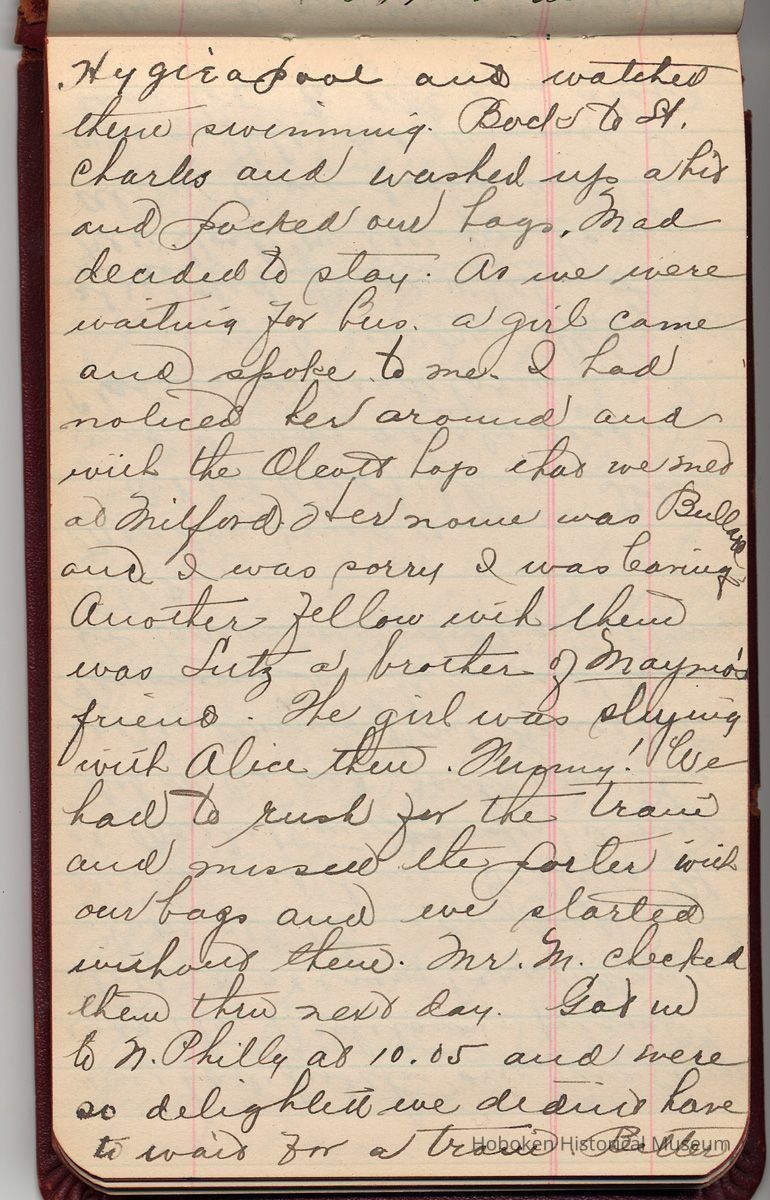 Hygeia pool and watched
them swimming. Back to St.
Charles and washed up a bit
and packed our bags. Mad
decided to stay. As we were
waiting for bus. a girl came
and spoke to me. I had
noticed her around and
with the Olcott boys that we met
at Milford. Her name was Bullard
and I was sorry I was leaving.
Another fellow with them
was Lutz a brother of Mayme's
friend. The girl was staying
with Alice then. Funny! We
had to rush for the train
and missed the porter with
our bags and we started
without them. Mr. M. checked
them thru next day. Got in
to N. Philly at 10.05 and were
so delighted we didnt have
to wait for a train.
Hoboken Historical Museum